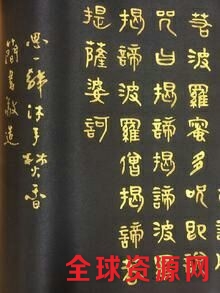 若波羅蜜多呪即
呪曰揭諦揭諦波
揭諦波羅僧揭諦菩
提薩婆訶
沐手焚香
簡書敬造
全球资源网